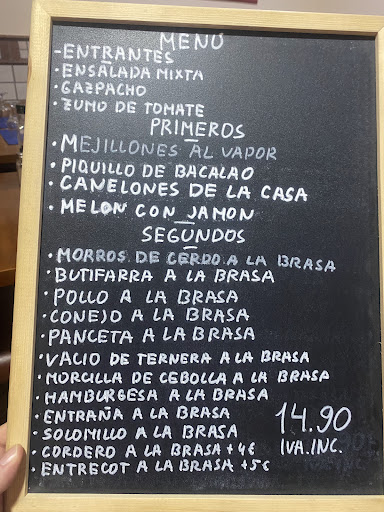 MENÚ
-ENTRANTES
• ENSALADA MIXTA
• GAZPACHO
• ZUMO DE TOMATE
PRIMEROS
• MEJILLONES AL VAPOR
• PIQUILLO DE BACALAO
• CANELONES DE LA CASA
• MELON CON JAMON
SEGUNDOS
• MORROS DE CERDO A LA BRASA
• BUTIFARRA A LA BRASA
• POLLO A LA BRASA
• CONEJO A LA BRASA
• PANCETA A LA BRASA
• VACIO DE TERNERA A LA BRASA
• MORCILLA DE CEBOLLA A LA BRASA
• HAMBURGESA A LA BRASA
• ENTRAÑA A LA BRASA
• SOLOMILLO A LA BRASA
• CORDERO A LA BRASA +4€
• ENTRECOT A LA BRASA +5€
14.90
IVA.INC.